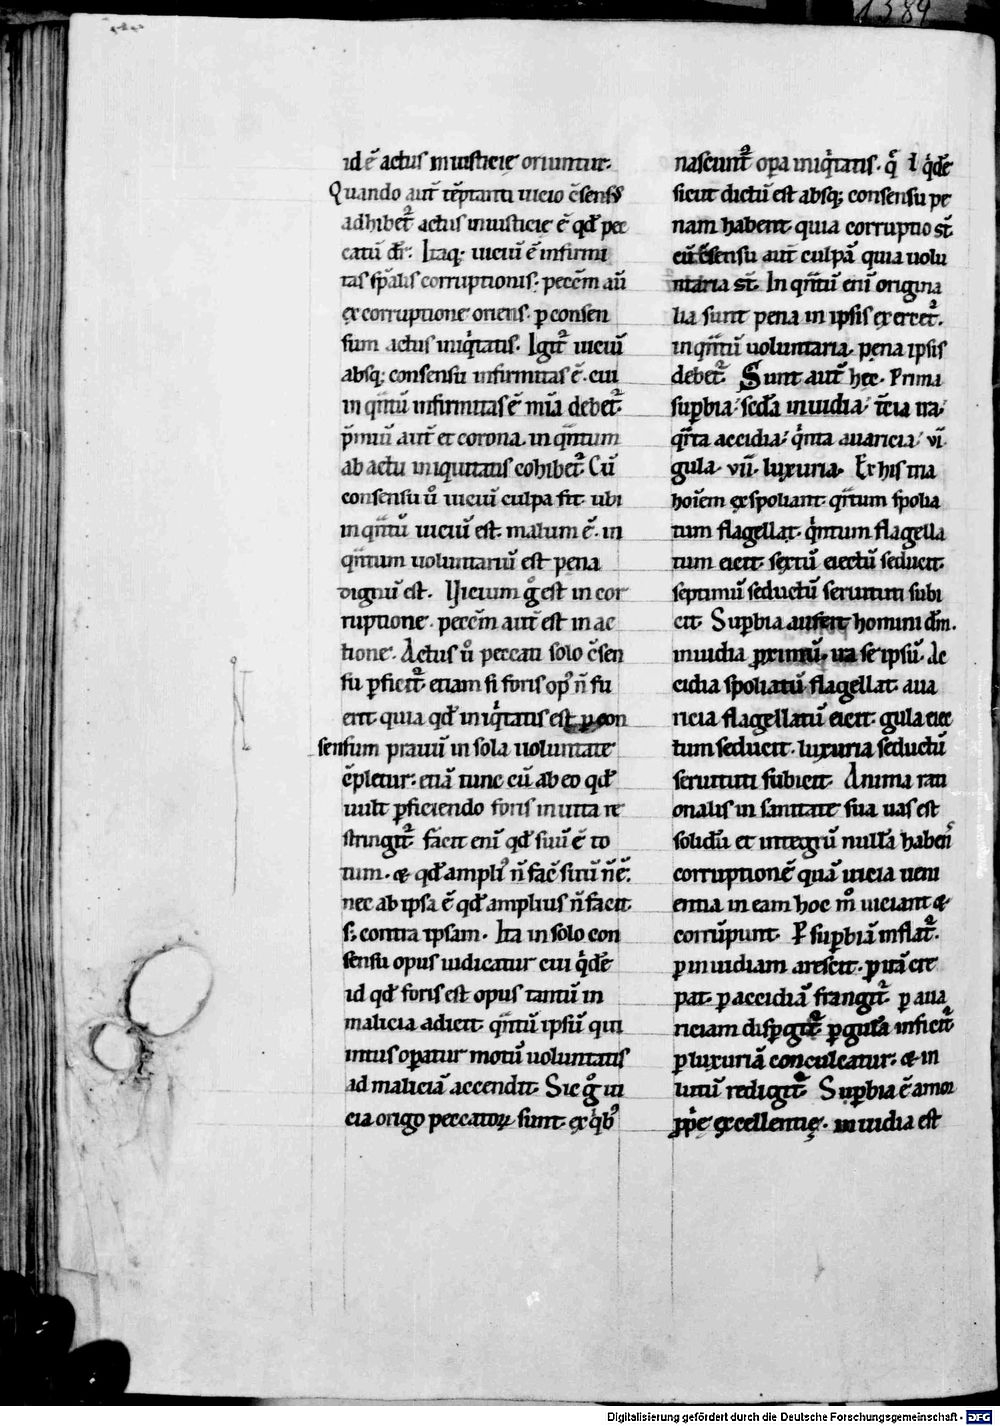 1389
id ē actus iniusticie oriuntur.
Quando aut̄ tēptanti uicio c̄sensus
adhibet᷑ actus iniusticie ē qd̄ pec
catū dr̄. Itaq; uiciū ē infirmi
tas sp̄alis corruptionis. peccm̄ aū
ex corruptione oriens. ꝑ consen
sum actus iniqͥtatis. Igit᷑ uiciū
absq; consensu infirmitas ē. cui
in qn̄tū infirmitas ē mīa debet᷑.
p̄miū aut̄ et corona. in qn̄tum
ab actu iniquitatis cohibet᷑. Cū
consensu ů uiciū culpa fit. ubi
in qn̄tū uiciū est. malum ē. in
qn̄tum uoluntariū est pena
dignū est. Uicium gͦ est in cor
ruptione. peccm̄ aut̄ est in ac
tione. Actus ů peccati solo c̄sen
su ꝑficit᷑. etiam si foris opꝰ n̄ fu
erit quia qd̄ iniqͥtatis est ꝑ con
sensum prauū in sola uoluntate
c̄pletur. etiā tunc cū ab eo qd̄
uult ꝑficiendo foris inuita re
stringit᷑. facit enī qd̄ suū ē to
tum. & qd̄ ampliꝰ n̄ fac̄ suū n̄ ē.
nec ab ipsa ē qd̄ amplius n̄ facit
s; contra ipsam. Ita in solo con
sensu opus iudicatur cui qͥdē
id qd̄ foris est opus tantū in
malicia adicit. qn̄tū ipsū qui
intus oꝑatur motū uoluntatis
ad maliciā accendit. Sic gͦ ui
cia origo peccatoꝝ sunt. ex qͥbꝰ
nascunt᷑ oꝑa iniqͥtatis. qͣ qͥdē
sicut dictū est absq; consensu pe
nam habent. quia corruptio st̄
cū c̄sensu aut̄ culpā quia uolu
ntaria st̄. In qn̄tū enī origina
lia sunt pena in ipsis exercet᷑.
in qn̄tū uoluntaria. pena ipsis
debet᷑. Sunt aut̄ hec. Prima
suꝑbia. scd̄a inuidia. t̄cia ira.
qr̄ta accidia. qͥnta auaricia. vī.
gula. vii. luxuria. Ex his iīīa
hoīem exspoliant. qr̄tum spolia
tum flagellat. qͥntum flagella
tum eicit. sextū eiectū seducit.
septimū seductū seruituti subi
cit. Suꝑbia aufert homini dm̄.
inuidia proximū. ira se ipsū. Ac
cidia spoliatū flagellat. aua
ricia flagellatū eicit. gula eiec
tum seducit. luxuria seductū
seruituti subicit. Anima rati
onalis in sanitate sua uas est
solidū et integrū nullā habens
corruptionē quā uicia ueni
entia in eam hoc mͦ uiciant &
corrūpunt. P suꝑbiā inflat᷑.
ꝑ inuidiam arescit. ꝑ irā cre
pat. ꝑ accidiā frangit᷑. ꝑ aua
riciam disꝑgit᷑. ꝑ gulā inficit᷑
ꝑ luxuriā conculcatur. & in
lutū redigit᷑. Suꝑbia ē amor
ꝓprie excellentie. inuidia est
Digitalisierung gefördert durch die Deutsche Forschungsgemeinschaft - DFG